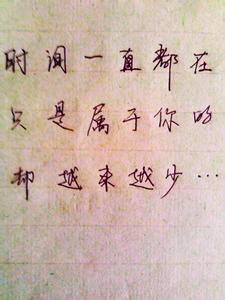 时间一直都在
只是属于你的
却越来越少…